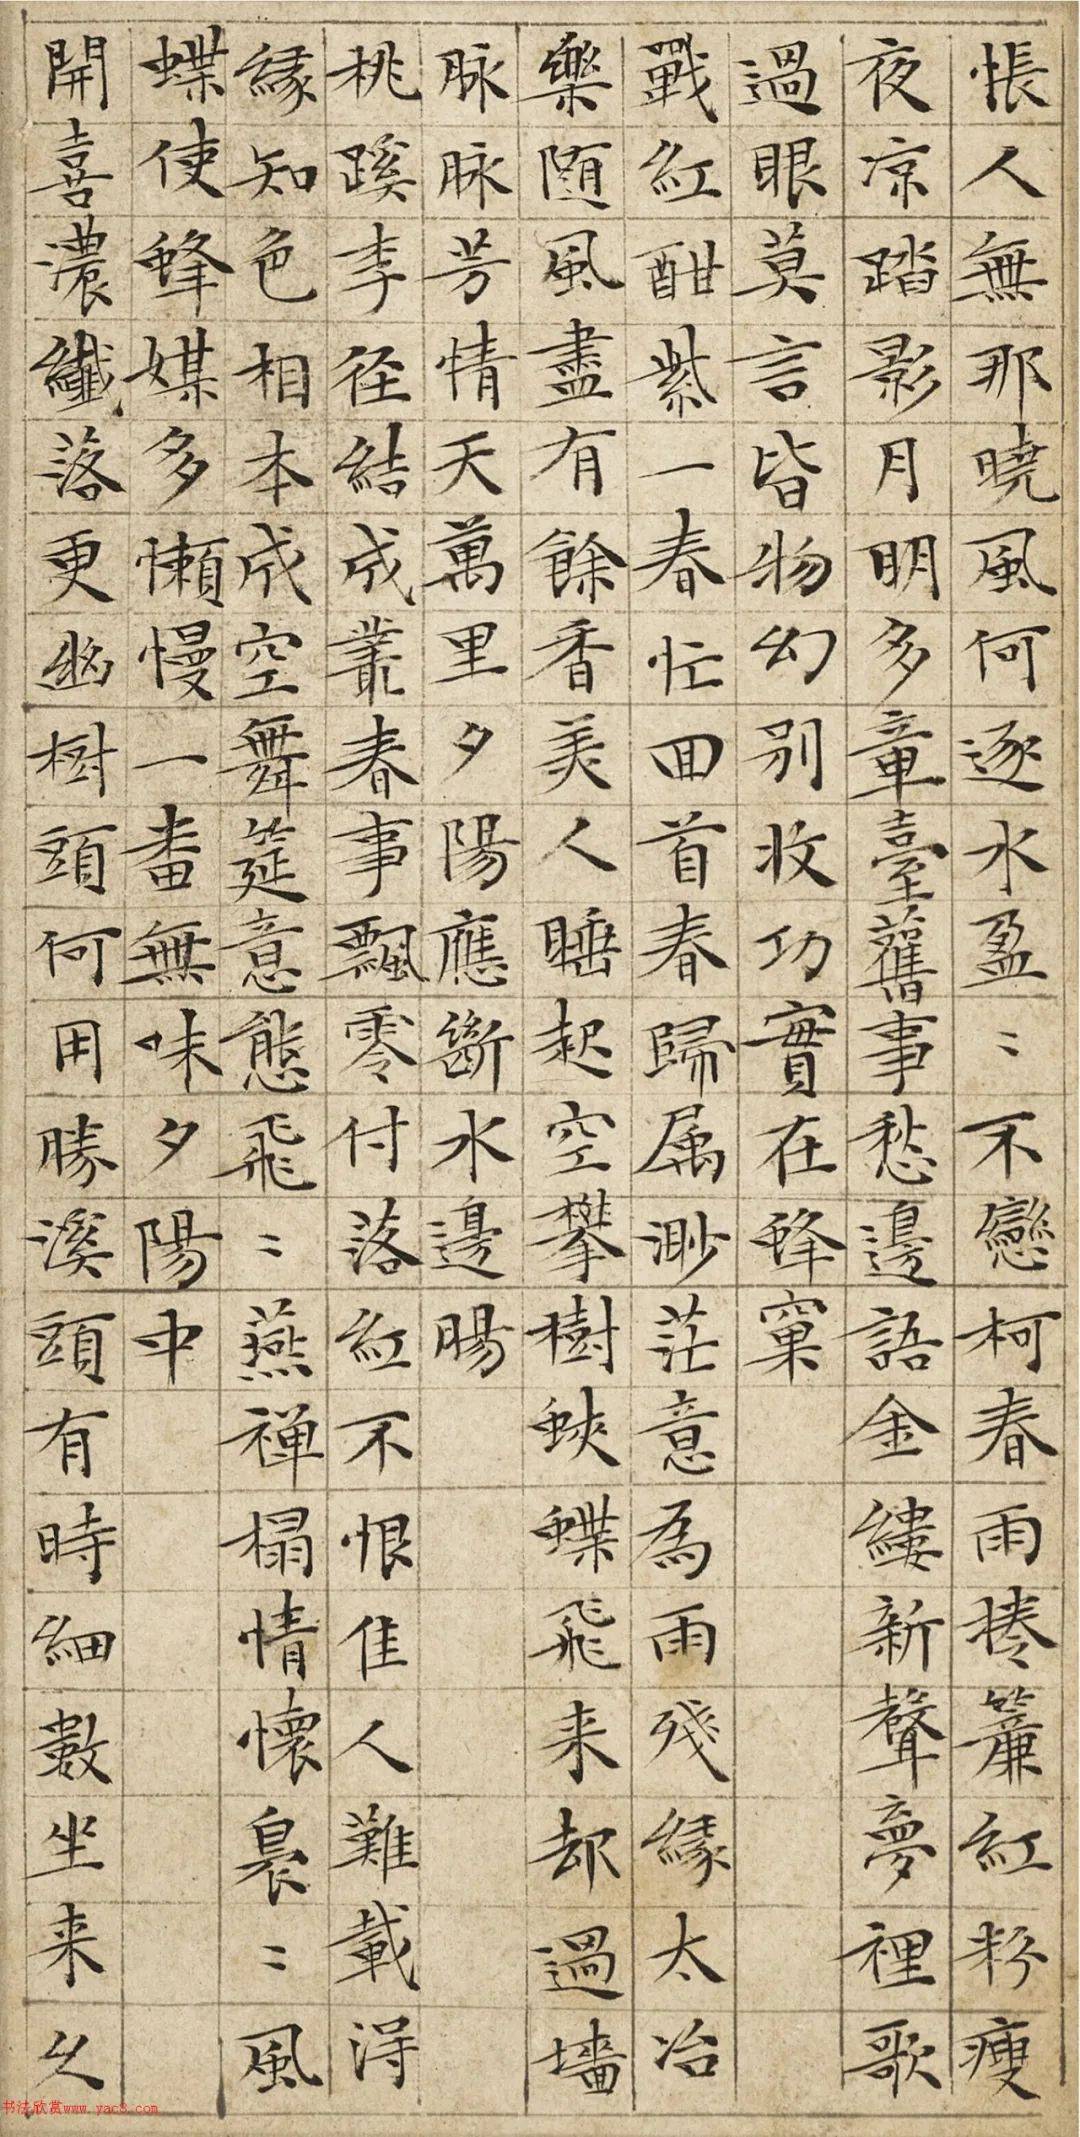 悵人無那曉風何逐水盈〻不戀柯春雨捲簾紅粉瘦
夜凉踏影月明多章臺舊事愁邊語金縷新聲夢裡歌
過眼莫言皆物幻別收功實在蜂窠
戰紅酣紫一春忙回首春歸属渺茫意為雨殘緣太冶
樂随風盡有餘香美人睡起空攀樹蛺蝶飛来却過墻
脉脉芳情天萬里夕陽應斷水邊腸
桃蹊李径結成叢春事飄零付落紅不恨佳人難載得
緣知色相本成空舞筵意態飛〻燕禅榻情懷裊〻風
蝶使蜂媒多懶慢一番無味夕陽中
開喜濃纖落更幽樹頭何用勝溪頭有時細數坐来久
书法欣赏www.yac8.com